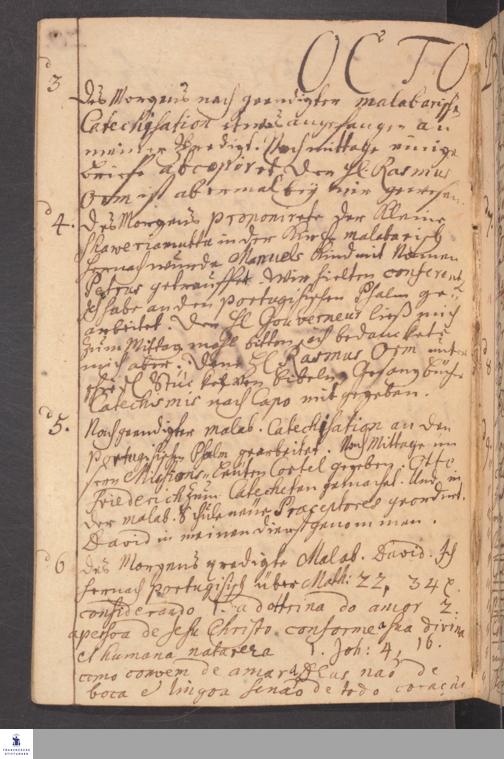 OCTO
d 3
Des Morgens nach geendigter malabarischen
Catechisation etwas angefangen an
meiner Predigt. Nachmittage einige
briefe abcopiret. Der H. Rasmus
Orm ist abermal bey mir gewesen.
d 4.
Des Morgens proponirete der kleine
Shawerianutta in der Kirche malabarisch
hernach wurde Manuels Kind mit Namen
Petrus getaufft. Wir hielten conferentz
Ich habe an den Portugisischen Psalm ge-
arbeitet. Der H. Gouverneur ließ mich
zum Mittag mahl bitten, ich bedanckete
mich aber. Dem H. Rasmus Orm
Stück von bibeln, Gesangbücher
Catechismis nach Capo mit gegeben.
d 5.
Nach geendigter malab. Catechisation an den
Portugisischen Psalm gearbeitet. Nach Mittage
Missions-Leuten Costel gegeben. Otto
Friederich zum Catecheten gemacht. Und in
der malab. Schule neue Praeceptores geordnet.
David in meinen Dienst genommen.
d 6
Des Morgens predigte Malab. David. Ich
hernach Portugisisch über Matth: 22, 34
considerando 1. a dottrina do amor 2.
a pesoa de Jesu Christo conforme a sua divina
et humana natureza 1. Joh: 4, 16.
como convem de amar a Deus naõ de
boca e lingoa senaõ de todo coraçaõ
FRANCKESCHE STIFTUNGEN